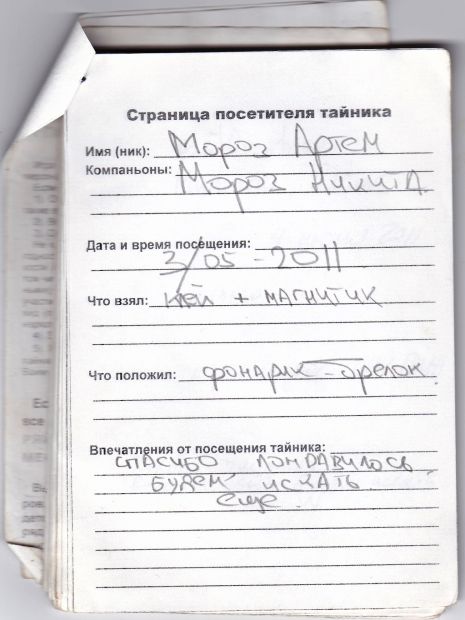 Страница посетителя тайника
Имя (ник): Мороз Артем
Компаньоны: Мороз Никита.
Дата и время посещения:
3/05 - 2011
Что взял: клей + магнитик
Что положил: фонарик - брелок.
Впечатления от посещения тайника:
спасибо понравилось
будем искать
еще.